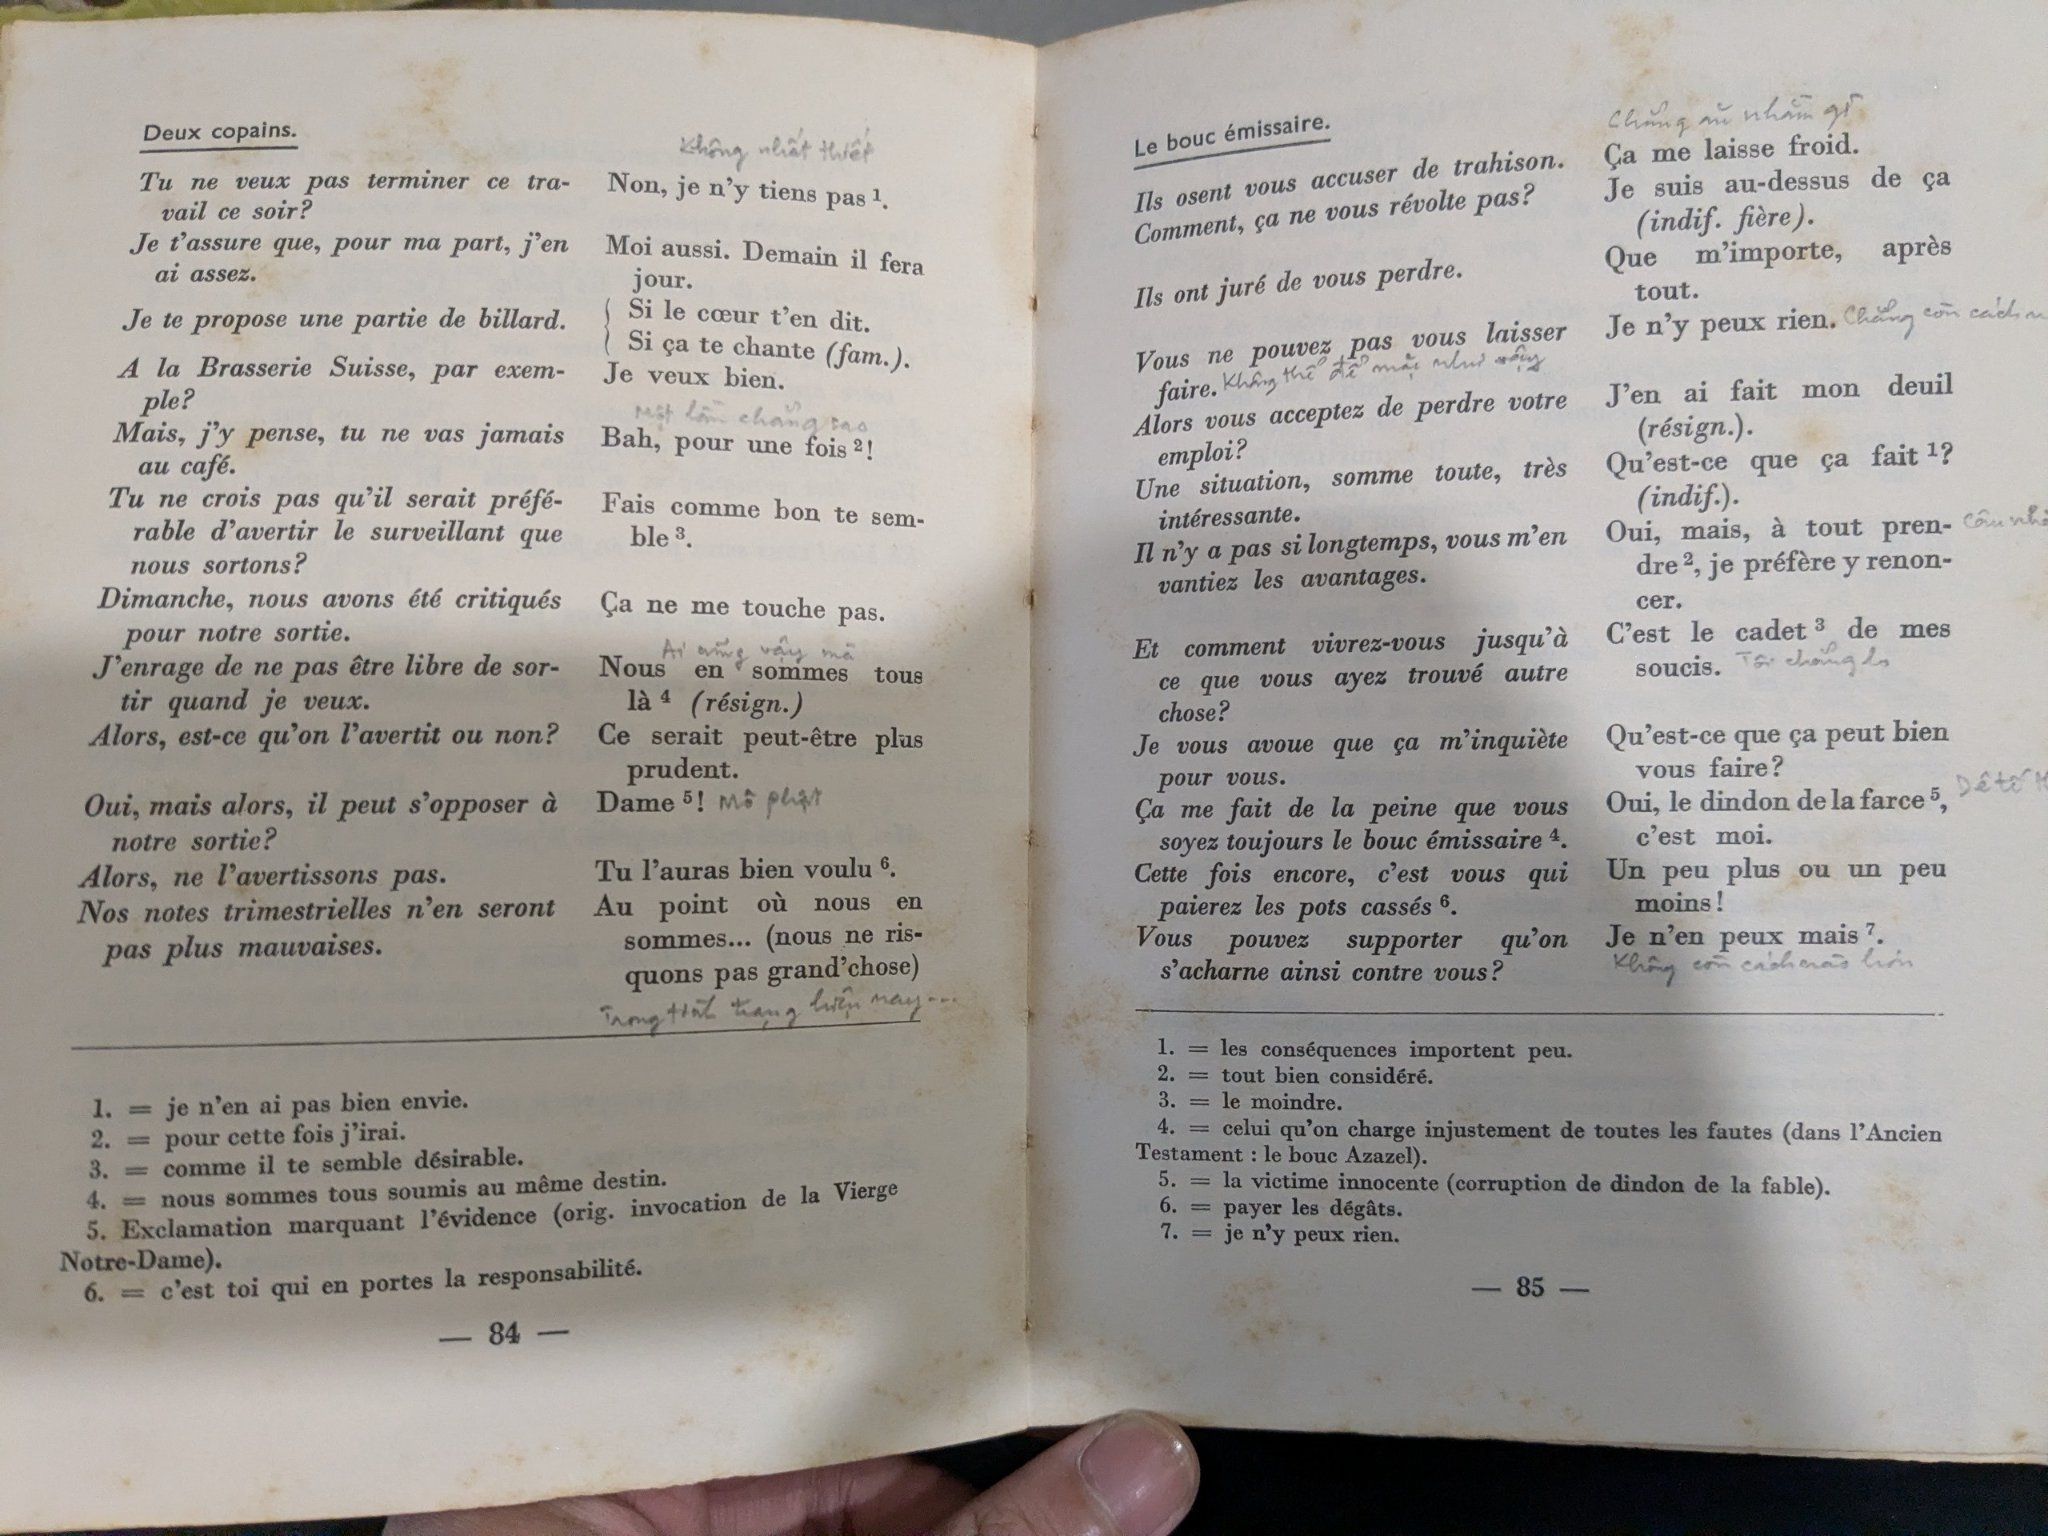 Deux copains.
Không nhất thiết
Tu ne veux pas terminer ce tra-
vail ce soir?
Non, je n'y tiens pas ¹.
Je t'assure que, pour ma part, j'en
ai assez.
Moi aussi. Demain il fera
jour.
Je te propose une partie de billard.
Si le cœur t'en dit.
Si ça te chante (fam.).
A la Brasserie Suisse, par exem-
ple?
Je veux bien.
Một lần chẳng sao
Mais, j'y pense, tu ne vas jamais
au café.
Bah, pour une fois ²!
Tu ne crois pas qu'il serait préfé-
rable d'avertir le surveillant que
nous sortons?
Fais comme bon te sem-
ble ³.
Dimanche, nous avons été critiqués
pour notre sortie.
Ça ne me touche pas.
Ai cũng vậy mà
J'enrage de ne pas être libre de sor-
tir quand je veux.
Nous en sommes tous
là ⁴ (résign.)
Alors, est-ce qu'on l'avertit ou non?
Ce serait peut-être plus
prudent.
Oui, mais alors, il peut s'opposer à
notre sortie?
Dame ⁵! Mô phật
Alors, ne l'avertissons pas.
Tu l'auras bien voulu ⁶.
Nos notes trimestrielles n'en seront
pas plus mauvaises.
Au point où nous en
sommes... (nous ne ris-
quons pas grand'chose)
Trong tình trạng hiện nay...
1. = je n'en ai pas bien envie.
2. = pour cette fois j'irai.
3. = comme il te semble désirable.
4. = nous sommes tous soumis au même destin.
5. Exclamation marquant l'évidence (orig. invocation de la Vierge
Notre-Dame).
6. = c'est toi qui en portes la responsabilité.
— 84 —
Le bouc émissaire.
Chẳng ăn nhằm gì
Ils osent vous accuser de trahison.
Ça me laisse froid.
Comment, ça ne vous révolte pas?
Je suis au-dessus de ça
(indif. fière).
Ils ont juré de vous perdre.
Que m'importe, après
tout.
Vous ne pouvez pas vous laisser
faire. Không thể để mặc như vậy
Je n'y peux rien. Chẳng còn cách
Alors vous acceptez de perdre votre
emploi?
J'en ai fait mon deuil
(résign.).
Une situation, somme toute, très
intéressante.
Qu'est-ce que ça fait ¹?
(indif.).
Il n'y a pas si longtemps, vous m'en
vantiez les avantages.
Oui, mais, à tout pren-
dre ², je préfère y renon-
cer.
Et comment vivrez-vous jusqu'à
ce que vous ayez trouvé autre
chose?
C'est le cadet ³ de mes
soucis. Tôi chẳng lo
Je vous avoue que ça m'inquiète
pour vous.
Qu'est-ce que ça peut bien
vous faire?
Ça me fait de la peine que vous
soyez toujours le bouc émissaire ⁴.
Oui, le dindon de la farce ⁵, Dê tế
c'est moi.
Cette fois encore, c'est vous qui
paierez les pots cassés ⁶.
Un peu plus ou un peu
moins!
Vous pouvez supporter qu'on
s'acharne ainsi contre vous?
Je n'en peux mais ⁷.
Không còn cách nào hơn
1. = les conséquences importent peu.
2. = tout bien considéré.
3. = le moindre.
4. = celui qu'on charge injustement de toutes les fautes (dans l'Ancien
Testament : le bouc Azazel).
5. = la victime innocente (corruption de dindon de la fable).
6. = payer les dégâts.
7. = je n'y peux rien.
— 85 —